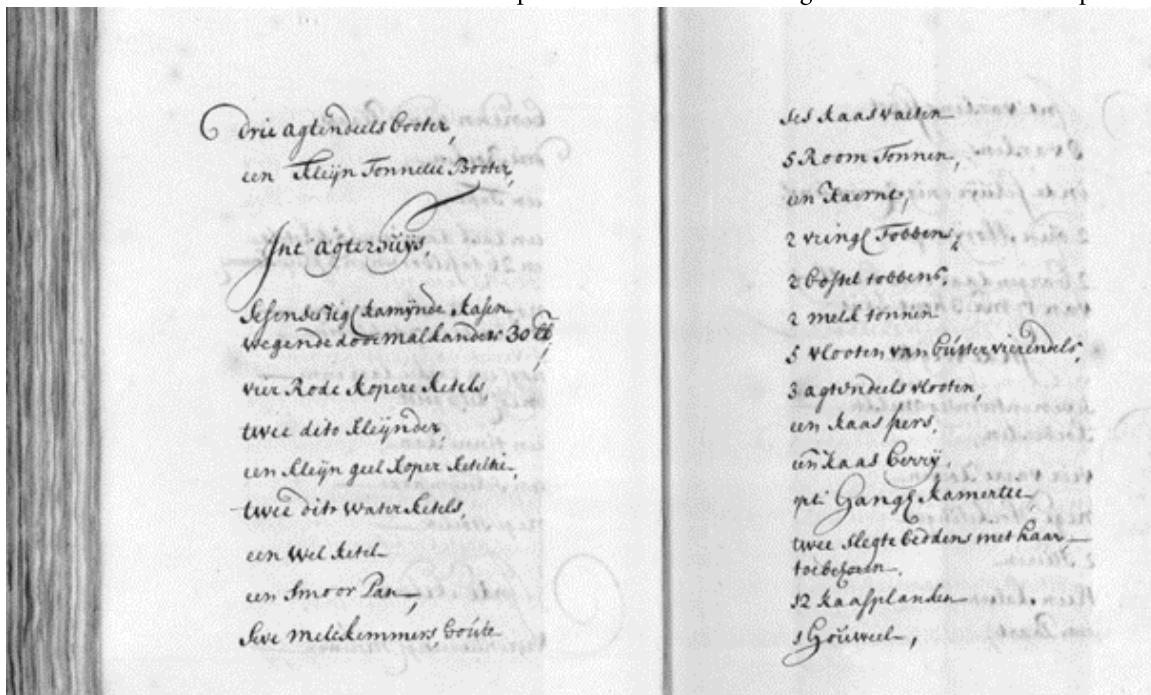 Drie agtendeels booter,
een Kleijn Tonnetie Booter,
Int agterhuijs,
Sesendertig Kamijnde Kasen
wegende door malkanders 30 lb,
vier Rode Kopere Ketels
twee dito Kleijnder,
een Kleijn geel Koper Keteltie,
twee dito water Ketels,
een wel Ketel
een Smoor Pan,
Seve melckemmers
ses Kaas vaeten
5 Room Tonnen,
een Kaernt,
2 vring Tobbens,
2 bostel tobbens,
2 melk tonnen
5 vlooten van butter vierendels,
3 agtendeels vlooten,
een Kaas pers,
een Kaas berrij,
opt Gang Kamertie,
twee slegte beddens met haar
toebehoren,
12 Kaasplanken